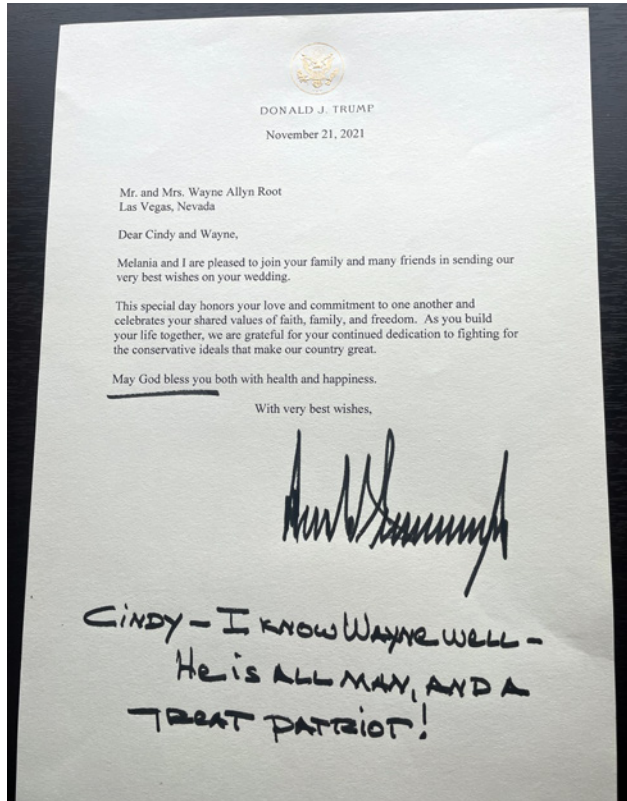 DONALD J. TRUMP
November 21, 2021
Mr. and Mrs. Wayne Allyn Root
Las Vegas, Nevada
Dear Cindy and Wayne,
Melania and I are pleased to join your family and many friends in sending our
very best wishes on your wedding.
This special day honors your love and commitment to one another and
celebrates your shared values of faith, family, and freedom. As you build
your life together, we are grateful for your continued dedication to fighting for
the conservative ideals that make our country great.
May God bless you both with health and happiness.
With very best wishes,
CiNDY – I KNOW WAYNE WELL –
He is ALL MAN, AND A
TREAT PATRIOT!